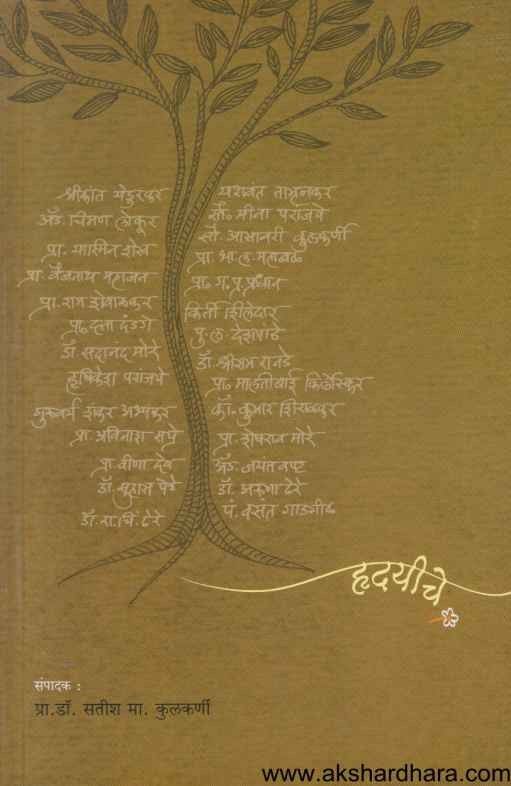 श्रीकांत येडूरकर
अॅड. चिमण ठाकूर
प्रा. यास्मिन शेख
प्रा. वैजनाथ महाजन
प्रा. राम
प्रा. दत्ता दंडगे
डॉ. सदानंद मोरे
हृषिकेश परांजपे
गुरुवर्य शंकर अभ्यंकर
प्रा. अविनाश सप्रे
प्रा. वीणा देव
डॉ. सुहास पेठे
डॉ. रा. चिं. ढेरे
यशवंत ताम्हनकर
सौ. मीना परांजपे
सौ. आसावरी कुलकर्णी
प्रा. भा. ल. महाबळ
प्रा. ग. प्र. प्रधान
किर्ती शिलेदार
पु. ल. देशपांडे
डॉ. श्रीराम रानडे
प्रा. मालतीबाई किर्लोस्कर
कॉ. कुमार शिराळकर
प्रा. शेषराव मोरे
अॅड. जयंत
डॉ. अरुणा ढेरे
पं. वसंत गाडगीळ
हृदयीचे
संपादक :
प्रा.डॉ. सतीश मा. कुलकर्णी
www.akshardhara.com